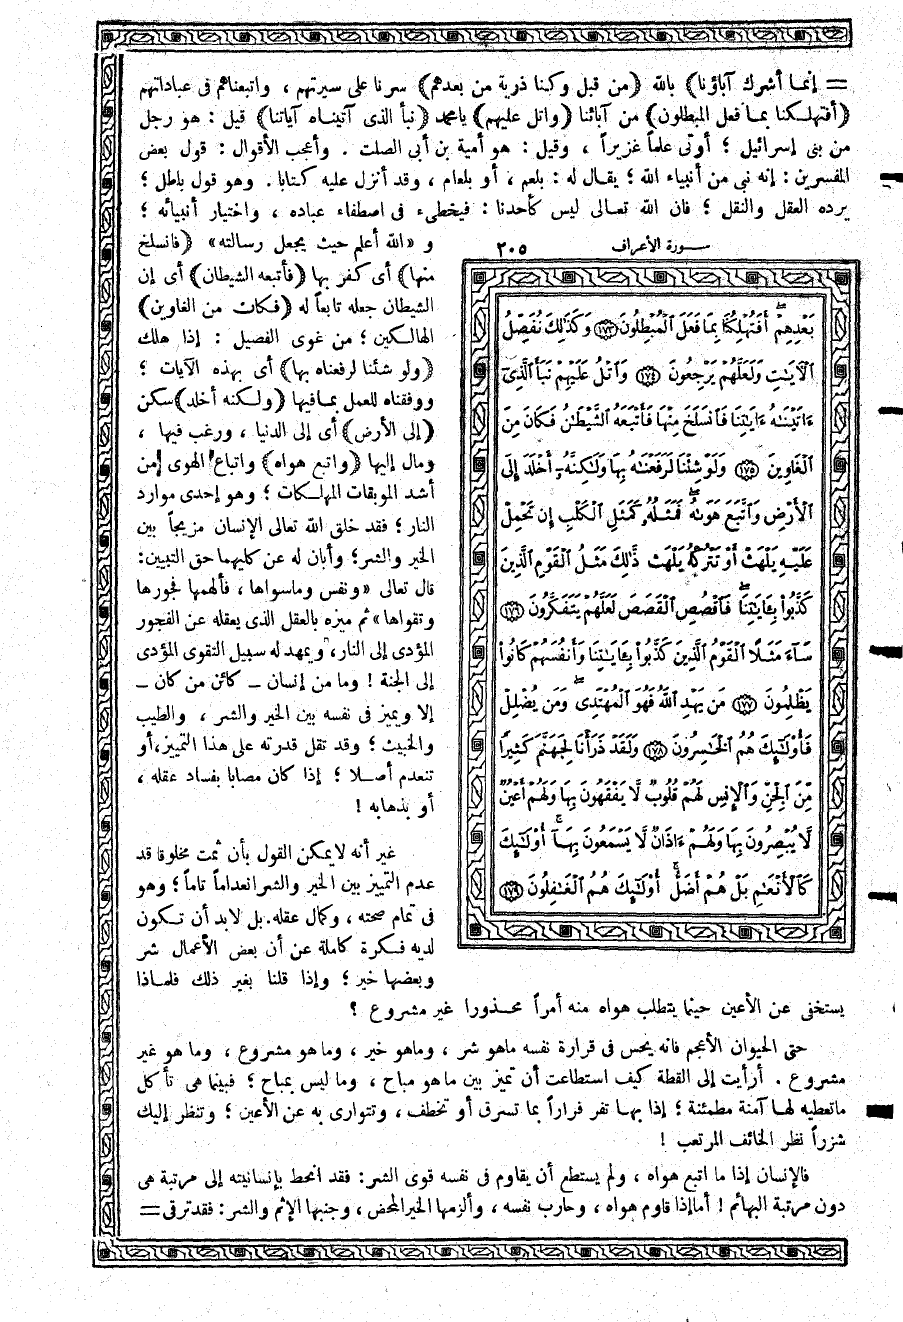 = إنما أشرك آباؤنا) بالله (من قبل وكنا ذرية من بعدهم) سرنا على سيرتهم ، واتبعناهم فى عباداتهم
(أفتهلكنا بما فعل المبطلون) من آبائنا (واتل عليهم) يامحمد (نبأ الذى آتيناه آياتنا) قيل : هو رجل
من بنى إسرائيل ؛ أوتى علماً غزيراً ، وقيل : هو أمية بن أبى الصلت . وأعجب الأقوال : قول بعض
المفسرين : إنه نبى من أنبياء الله ؛ يقال له : بلعم ، أو بلعام ، وقد أنزل عليه كتابا . وهو قول باطل ؛
يرده العقل والنقل ؛ فان الله تعالى ليس كأحدنا : فيخطىء فى اصطفاء عباده ، واختيار أنبيائه ؛
و «الله أعلم حيث يجعل رسالته» (فانسلخ
منها) أى كفر بها (فأتبعه الشيطان) أى إن
الشيطان جعله تابعاً له (فكان من الغاوين)
الهالكين ؛ من غوى الفصيل : إذا هلك
(ولو شئنا لرفعناه بها) أى بهذه الآيات ؛
ووفقناه للعمل بما فيها (ولكنه أخلد) سكن
(إلى الأرض) أى إلى الدنيا ، ورغب فيها ،
ومال إليها (واتبع هواه) واتباع الهوى من
أشد الموبقات المهلكات ؛ وهو إحدى موارد
النار ؛ فقد خلق الله تعالى الإنسان مزيجاً بين
الخير والشر ؛ وأبان له عن كليهما حق التبيين :
قال تعالى «ونفس وماسواها ، فألهمها فجورها
وتقواها» ثم ميزه بالعقل الذى يعقله عن الفجور
المؤدى إلى النار ، ويمهد له سبيل التقوى المؤدى
إلى الجنة ! وما من إنسان – كائن من كان –
إلا ويميز فى نفسه بين الخير والشر ، والطيب
والخبيث ؛ وقد تقل قدرته على هذا التمييز ، أو
تنعدم أصلا ؛ إذا كان مصابا بفساد عقله ،
أو بذهابه !
غير أنه لايمكن القول بأن ثمت مخلوقا قد
عدم التمييز بين الخير والشر انعداماً تاماً ؛ وهو
فى تمام صحته ، وكمال عقله . بل لابد أن تكون
لديه فكرة كاملة عن أن بعض الأعمال شر
وبعضها خير ؛ وإذا قلنا بغير ذلك فلماذا
سورة الأعراف ٢٠٥
بَعْدِهِمْ أَفَتُهْلِكُنَا بِمَا فَعَلَ ٱلْمُبْطِلُونَ ١٧٣ وَكَذَٰلِكَ نُفَصِّلُ
ٱلْـَٔايَٰتِ وَلَعَلَّهُمْ يَرْجِعُونَ ١٧٤ وَٱتْلُ عَلَيْهِمْ نَبَأَ ٱلَّذِىٓ
ءَاتَيْنَٰهُ ءَايَٰتِنَا فَٱنسَلَخَ مِنْهَا فَأَتْبَعَهُ ٱلشَّيْطَٰنُ فَكَانَ مِنَ
ٱلْغَاوِينَ ١٧٥ وَلَوْ شِئْنَا لَرَفَعْنَٰهُ بِهَا وَلَٰكِنَّهُۥٓ أَخْلَدَ إِلَى
ٱلْأَرْضِ وَٱتَّبَعَ هَوَىٰهُ فَمَثَلُهُۥ كَمَثَلِ ٱلْكَلْبِ إِن تَحْمِلْ
عَلَيْهِ يَلْهَثْ أَوْ تَتْرُكْهُ يَلْهَث ذَّٰلِكَ مَثَلُ ٱلْقَوْمِ ٱلَّذِينَ
كَذَّبُوا۟ بِـَٔايَٰتِنَا فَٱقْصُصِ ٱلْقَصَصَ لَعَلَّهُمْ يَتَفَكَّرُونَ ١٧٦
سَآءَ مَثَلًا ٱلْقَوْمُ ٱلَّذِينَ كَذَّبُوا۟ بِـَٔايَٰتِنَا وَأَنفُسَهُمْ كَانُوا۟
يَظْلِمُونَ ١٧٧ مَن يَهْدِ ٱللَّهُ فَهُوَ ٱلْمُهْتَدِى وَمَن يُضْلِلْ
فَأُو۟لَٰٓئِكَ هُمُ ٱلْخَٰسِرُونَ ١٧٨ وَلَقَدْ ذَرَأْنَا لِجَهَنَّمَ كَثِيرًا
مِّنَ ٱلْجِنِّ وَٱلْإِنسِ لَهُمْ قُلُوبٌ لَّا يَفْقَهُونَ بِهَا وَلَهُمْ أَعْيُنٌ
لَّا يُبْصِرُونَ بِهَا وَلَهُمْ ءَاذَانٌ لَّا يَسْمَعُونَ بِهَآ أُو۟لَٰٓئِكَ
كَٱلْأَنْعَٰمِ بَلْ هُمْ أَضَلُّ أُو۟لَٰٓئِكَ هُمُ ٱلْغَٰفِلُونَ ١٧٩
يستخفى عن الأعين حينما يتطلب هواه منه أمراً محذورا غير مشروع ؟
حتى الحيوان الأعجم فانه يحس فى قرارة نفسه ماهو شر ، وماهو خير ، وماهو مشروع ، وما هو غير
مشروع . أرأيت إلى القطة كيف استطاعت أن تميز بين ما هو مباح ، وما ليس بمباح ؛ فبينما هى تأكل
ماتعطيه لها آمنة مطمئنة ؛ إذا بها تفر فراراً بما تسرق أو تخطف ، وتتوارى به عن الأعين ؛ وتنظر إليك
شزراً نظر الخائف المرتعب !
فالإنسان إذا ما اتبع هواه ، ولم يستطع أن يقاوم فى نفسه قوى الشر : فقد انحط بإنسانيته إلى مرتبة هى
دون مرتبة البهائم ! أما إذا قاوم هواه ، وحارب نفسه ، وألزمها الخير المحض ، وجنبها الإثم والشر : فقد ترقى =